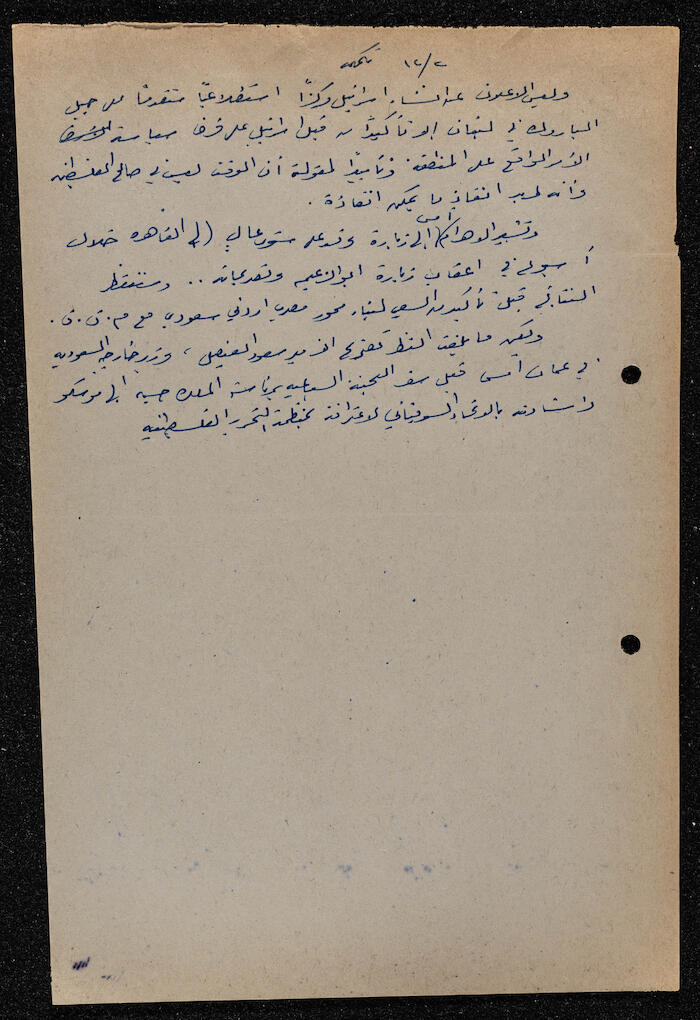 ١٢/٢ تكملة
وليس الاعلان عن انشاء اسرائيل مركزًا استطلاعيًا متقدمًا على جبل
الباروك في لبنان الا تأكيدًا من قبل اسرائيل على فرض سياسة
الأمر الواقع على المنطقة وتأييدًا لمقولة أن الوقت ليس في صالح الفلسطينيين
وأنه لا بد انقاذ ما يمكن انقاذه .
وتشير الاهرام أمس الى زيارة وفد على مستوى عالي الى القاهرة خلال
أسبوعين في اعقاب زيارة ابو الزعيم وتصريحاته .. وستنتظر
النتائج قبل تأكيد السعي لبناء محور مصري اردني سعودي مع م.ت.ف.
ولكن ما يلفت النظر تصريح الامير سعود الفيصل ، وزير خارجية السعودية
في عمان أمس قبل سفر اللجنة السباعية برئاسة الملك حسين الى موسكو
واشادته بالاتحاد السوفياتي لاعترافه بمنظمة التحرير الفلسطينية